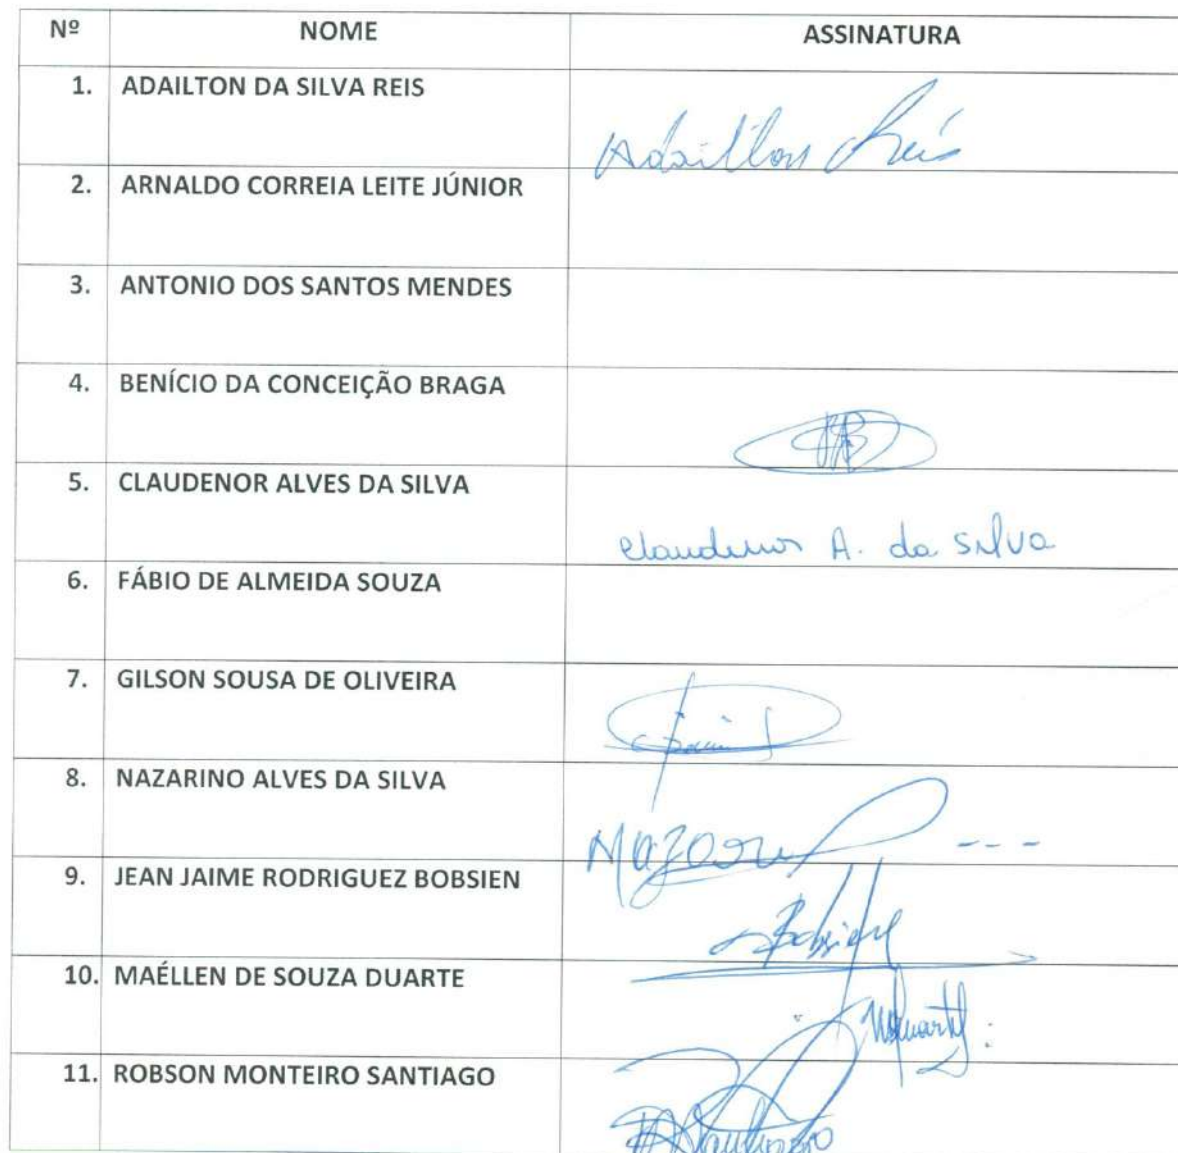 Nº NOME ASSINATURA
1. ADAILTON DA SILVA REIS Adailton Reis
2. ARNALDO CORREIA LEITE JÚNIOR
3. ANTONIO DOS SANTOS MENDES
4. BENÍCIO DA CONCEIÇÃO BRAGA
5. CLAUDENOR ALVES DA SILVA Claudenor A. da Silva
6. FÁBIO DE ALMEIDA SOUZA
7. GILSON SOUSA DE OLIVEIRA
8. NAZARINO ALVES DA SILVA
9. JEAN JAIME RODRIGUEZ BOBSIEN Bobsien
10. MAÉLLEN DE SOUZA DUARTE
11. ROBSON MONTEIRO SANTIAGO